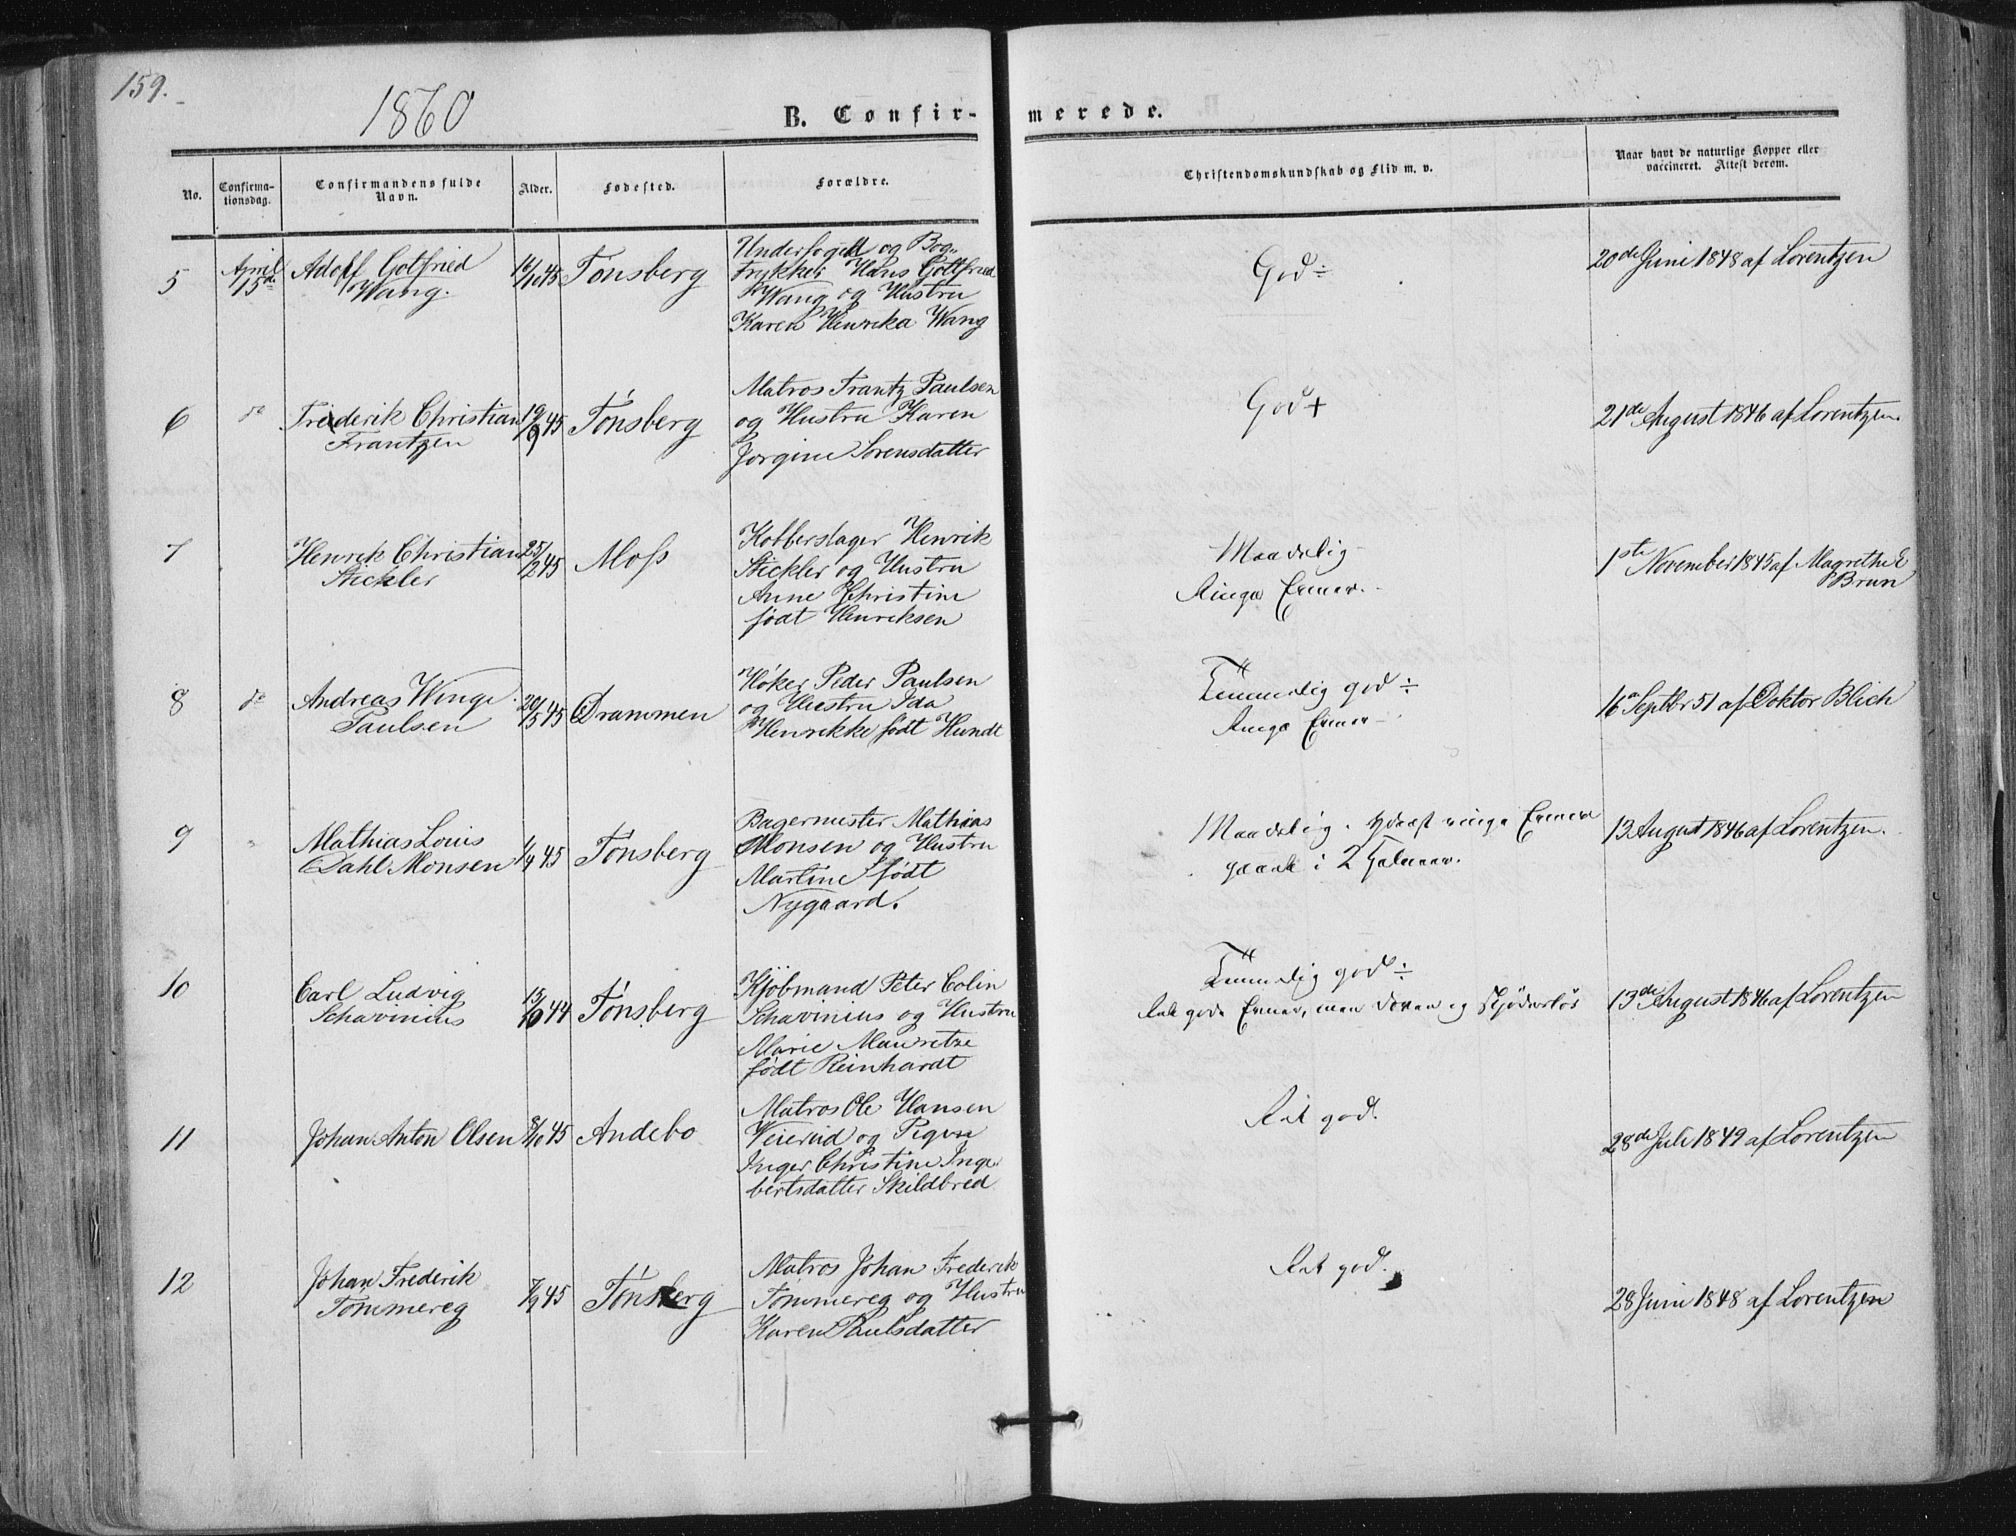 159.
1860
B. Confirmerede.
No.
Confirmationsdag.
Confirmandens fulde Navn.
Alder.
Fødested.
Forældre.
Christendomskundskab og Flid m. v.
Naar havt de naturlige Kopper eller
vaccineret. Attest derom.
5
April
15de
Adolf Gotfried
Wang.
16/10 45
Tönsberg
Underfoged og Bog-
trykker Hans Gottfried
Wang og Hustru
Karen Henrika Wang
God ÷
20de Juni 1848 af Lorentzen
6
do
Frederik Christian
Frantzen
19/9 45
Tönsberg
Matros Frantz Paulsen
og Hustru Karen
Jorgine Sorensdatter
God +
21de August 1846 af Lorentzen.
7
Henrik Christian
Stickler
25/2 45
Moss
Kobberslager Henrik
Stickler og Hustru
Anne Christine
født Henriksen
Maadelig
Ringe Evner.
1ste November 1845 af Magrethe E
Brun
8
do
Andreas Winge
Paulsen
20/5 45
Drammen
Høker Peder Paulsen
og Hustru Ida
Henrikke født Hundt
Temmelig god ÷
Ringe Evner
16 Septbr 51 af Doktor Blich
9
Mathias Louis
Dahl Monsen
1/4 45
Tönsberg
Bagermester Mathias
Monsen og Hustru
Martine født
Nygaard.
Maadelig. Yderst ringe Evner
i 2
13 August 1846 af Lorentzen.
10
Carl Ludvig
Schavinius
15/10 44
Tönsberg
Kjöbmand Peter Colin
Schavinius og Hustru
Marie Mauritze
født Reinhardt
Temmelig god ÷
Ret gode Evner, men doven og skjødesløs
13de August 1846 af Lorentzen
11
Johan Anton Olsen
8/10 45
Andebo
Matros Ole Hansen
Veierud og Pigen
Inger Christine Inge-
bertsdatter Skildbred
Ret god.
28de Juli 1849 af Lorentzen
12
Johan Frederik
Tömmereg
7/9 45
Tönsberg
Matros Johan Frederik
Tömmereg og Hustru
Karen Paulsdatter
Ret god.
28 Juni 1848 af Lorentzen